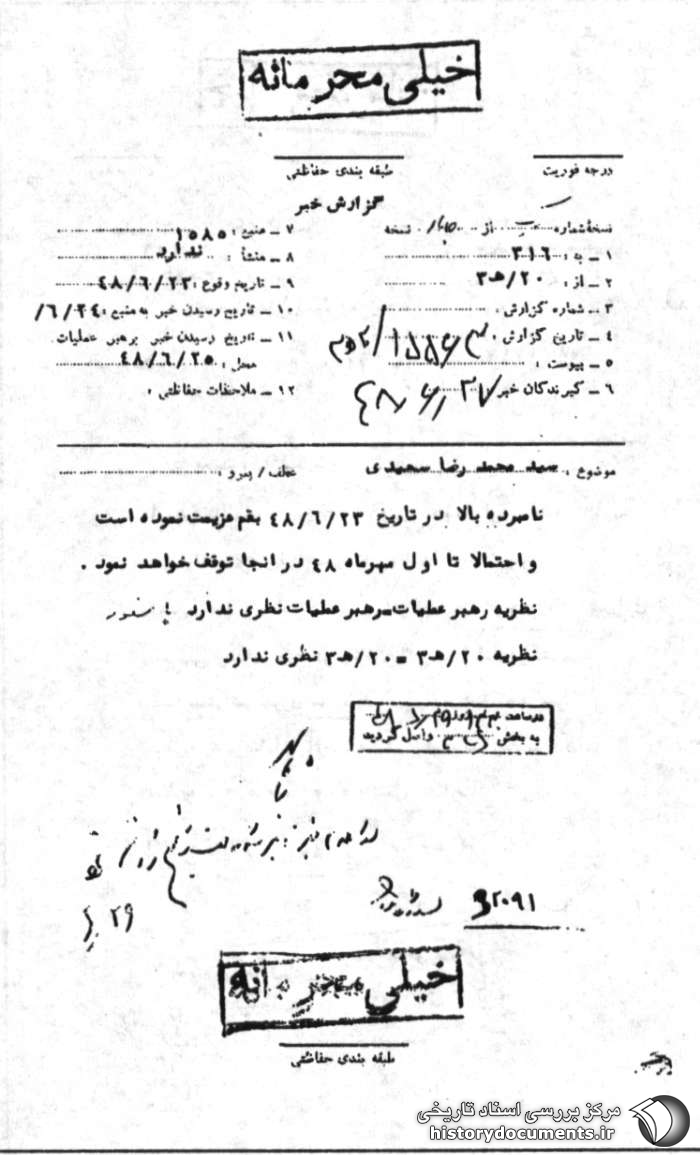 خیلی محرمانه
درجه فوریت
طبقه بندی حفاظتی
گزارش خبر
نسخه شماره از نسخه
۱ – به : ۳۱۶
۲ – از : ۲۰/هـ۳
۳ – شماره گزارش :
۴ – تاریخ گزارش :
۵ – پیوست :
۶ – گیرندگان خبر
۷ – منبع : ۱۵۸۵
۸ – منشأ : ندارد
۹ – تاریخ وقوع : ۴۸/۶/۲۳
۱۰ – تاریخ رسیدن خبر به منبع : ۶/۲۴/
۱۱ – تاریخ رسیدن خبر برهبر عملیات
محل : ۴۸/۶/۲۵
۱۲ – ملاحظات حفاظتی .
۴۸/۶/۲۷
موضوع : سید محمد رضا سعیدی
عطف / پیرو :
نامبرده بالا در تاریخ ۴۸/۶/۲۳ بقم عزیمت نموده است
و احتمالا تا اول مهرماه ۴۸ در انجا توقف خواهد نمود .
نظریه رهبر عملیات–رهبر عملیات نظری ندارد
نظریه ۲۰/هـ۳ = ۲۰/هـ۳ نظری ندارد
به بخش واصل گردید
۳۲۰۹۱
۲۹
خیلی محرمانه
طبقه بندی حفاظتی
مرکز بررسی اسناد تاریخی
historydocuments.ir